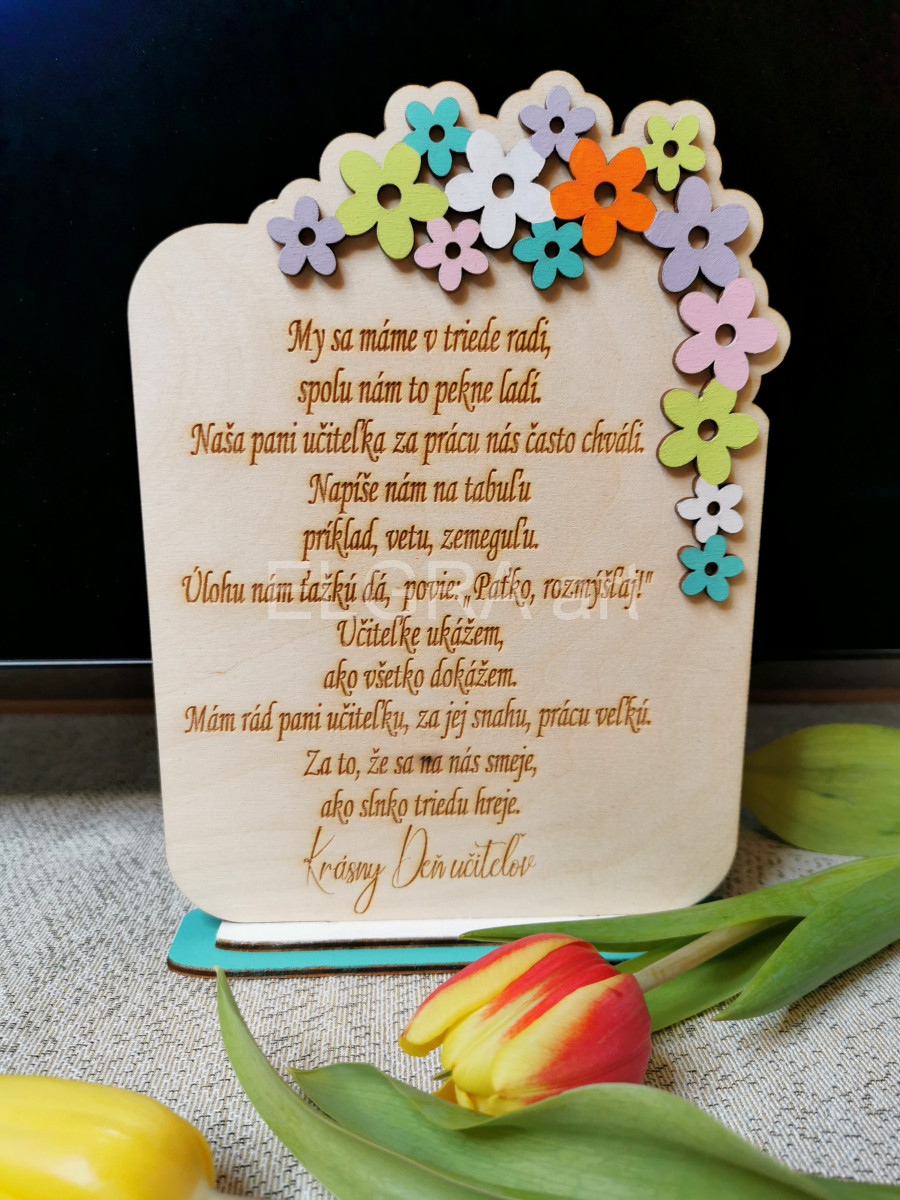 My sa máme v triede radi,
spolu nám to pekne ladí.
Naša pani učiteľka za prácu nás často chváli.
Napíše nám na tabuľu
príklad, vetu, zemeguľu.
Úlohu nám ťažkú dá, povie: „Paťko, rozmýšľaj!"
ELGRA art
Učiteľke ukážem,
ako všetko dokážem.
Mám rád pani učiteľku, za jej snahu, prácu veľkú.
Za to, že sa na nás smeje,
ako slnko triedu hreje.
Krásny Deň učiteľov